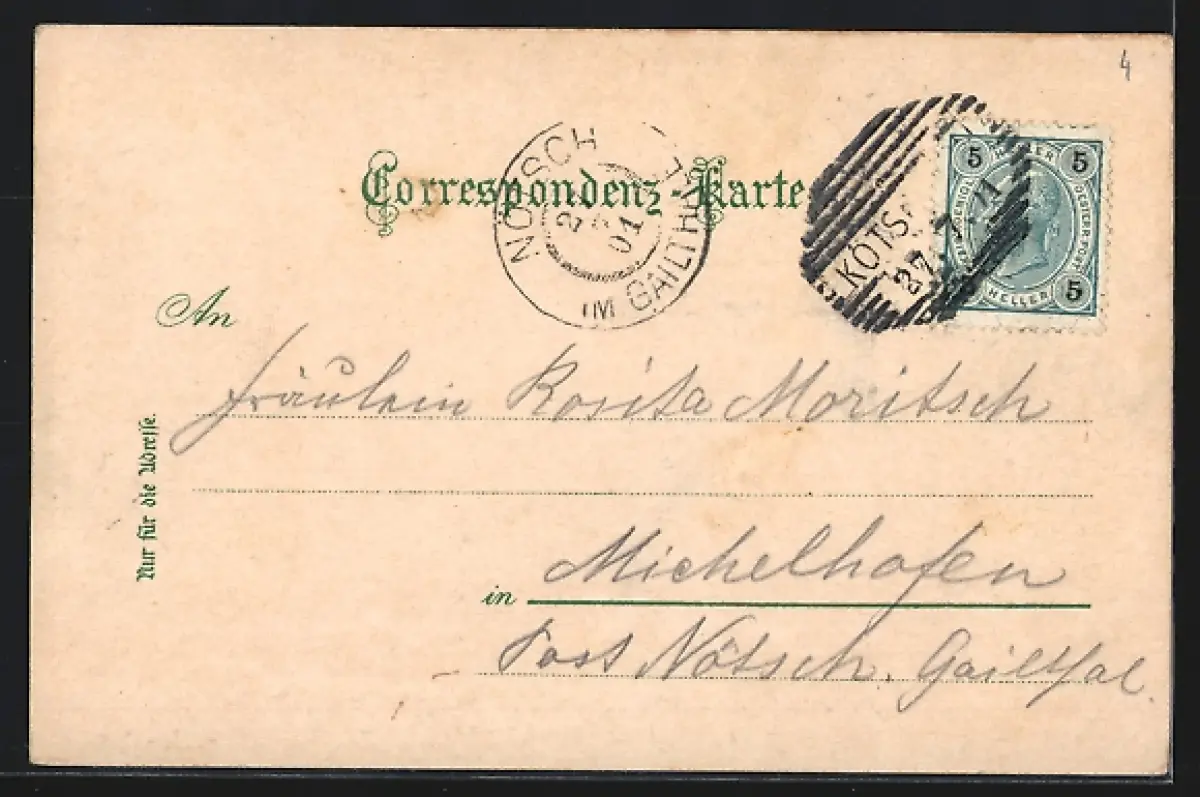 4
Correspondenz-Karte
NÖTSCH IM GAILTHALE
01
KÖTSC
27
5 HELLER 5
HELLER 5
An
Fräulein Rosita Moritsch
Nur für die Adresse.
in Michelhofen
Post Nötsch, Gailthal.